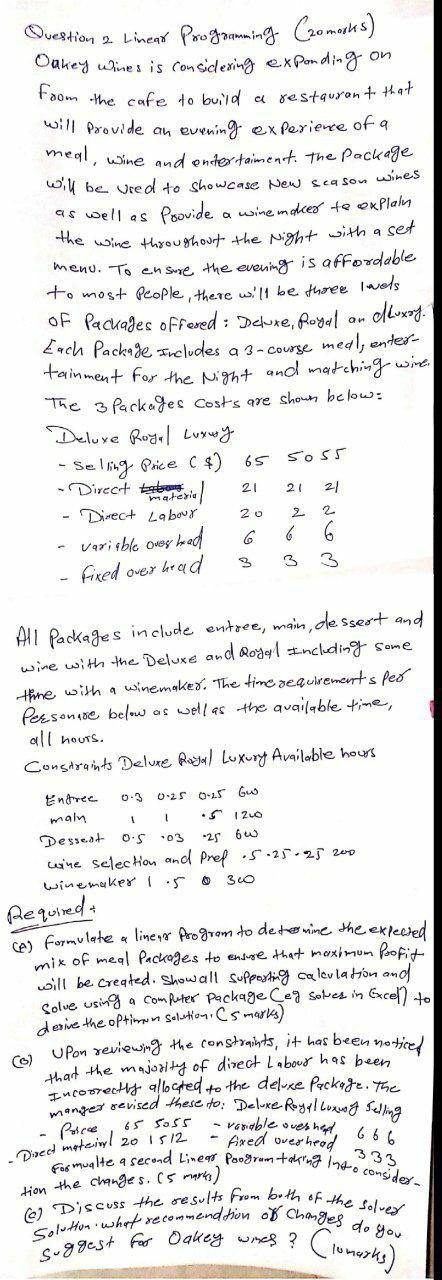 Question 2 Linear Programming. (20 marks)
Oakey wines is considering expanding on
from the cafe to build a restaurant that
will provide an evening experience of a
meal, wine and entertaiment. The package
will be used to showcase New season wines
as well as Provide a winemaker to explain
the wine throughout the Night with a set
menu. To ensure the evening is affordable
to most people, there will be three levels
of Packages offered: Deluxe, Royal an dLuxury.
Each Package Includes a 3-course meal, enter-
tainment for the Night and matching wine.
The 3 Packages costs are shown below:
Deluxe Royal Luxury
- Selling Price ($) 65 50 55
- Direct material 21 21 21
- Direct Labour 20 2 2
- variable over head 6 6 6
- fixed over head 3 3 3
All Packages include entree, main, dessert and
wine with the Deluxe and Royal Including some
time with a winemaker. The time requirements Per
Person are below as well as the available time,
all hours.
Constraints Deluxe Royal Luxury Available hours
Entree 0.3 0.25 0.25 600
main 1 1 .5 1200
Dessert 0.5 .03 .25 600
wine selection and Prep .5 .25 .25 200
winemaker 1 .5 0 300
Required:
(A) Formulate a linear Program to determine the expected
mix of meal Packages to ensure that maximum Profit
will be created. Show all supporting calculation and
solve using a computer package (eg solver in Excel) to
derive the optimum solution. (5 marks)
(B) Upon reviewing the constraints, it has been noticed
that the majority of direct Labour has been
Incorrectly allocated to the deluxe Package. The
manger revised these to: Deluxe Royal Luxury Selling
- Price 65 50 55 - variable over head 6 6 6
- Direct mateirel 20 15 12 - fixed over head 3 3 3
Formualte a second Linear Program taking Into consider-
tion the changes. (5 marks)
(C) Discuss the results from both of the solver
Solution. what recommendtion of changes do you
suggest for Oakey wines? (10 marks)